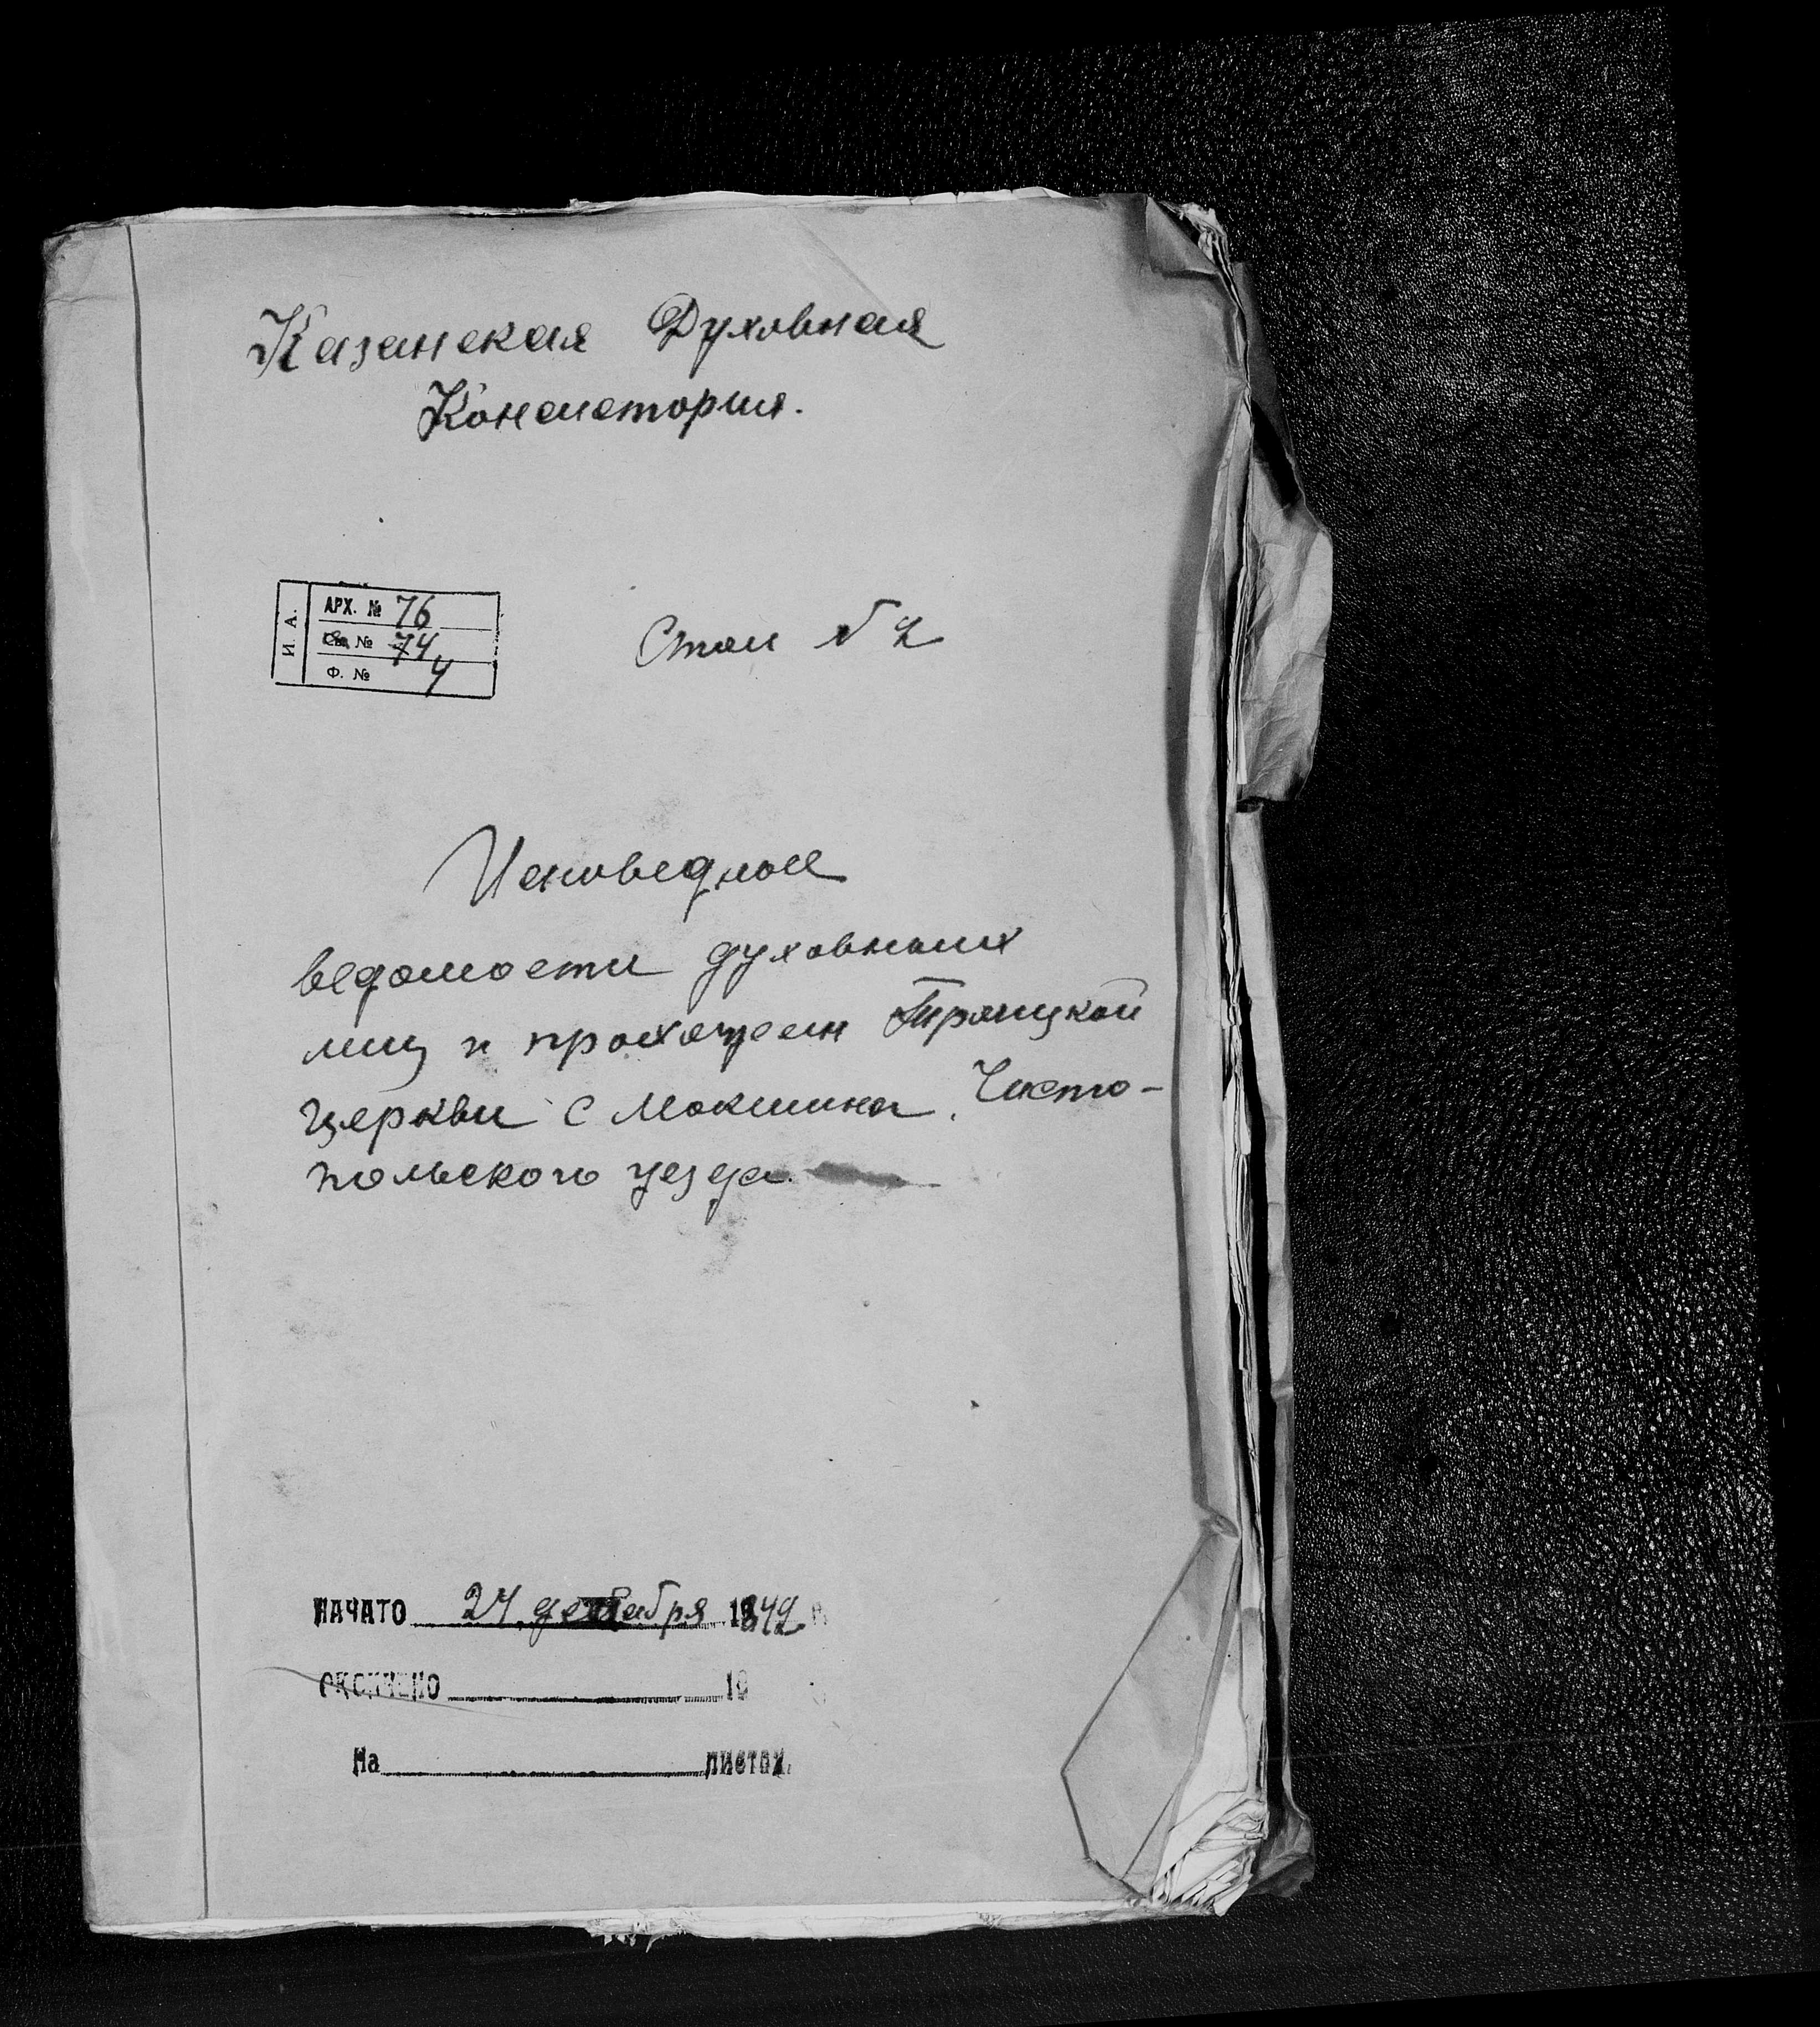 Казанская Духовная
Консистория.
И. А.
АРХ. № 76
Св. № 74
Ф. № 4
Стол № 2
Исповедные
ведомости духовных
лиц и прохожан Троицкой
церкви с Мокшина, Чисто-
польского уезда.
НАЧАТО 24 декабря 1842
ОКОНЧЕНО 19
На листах.